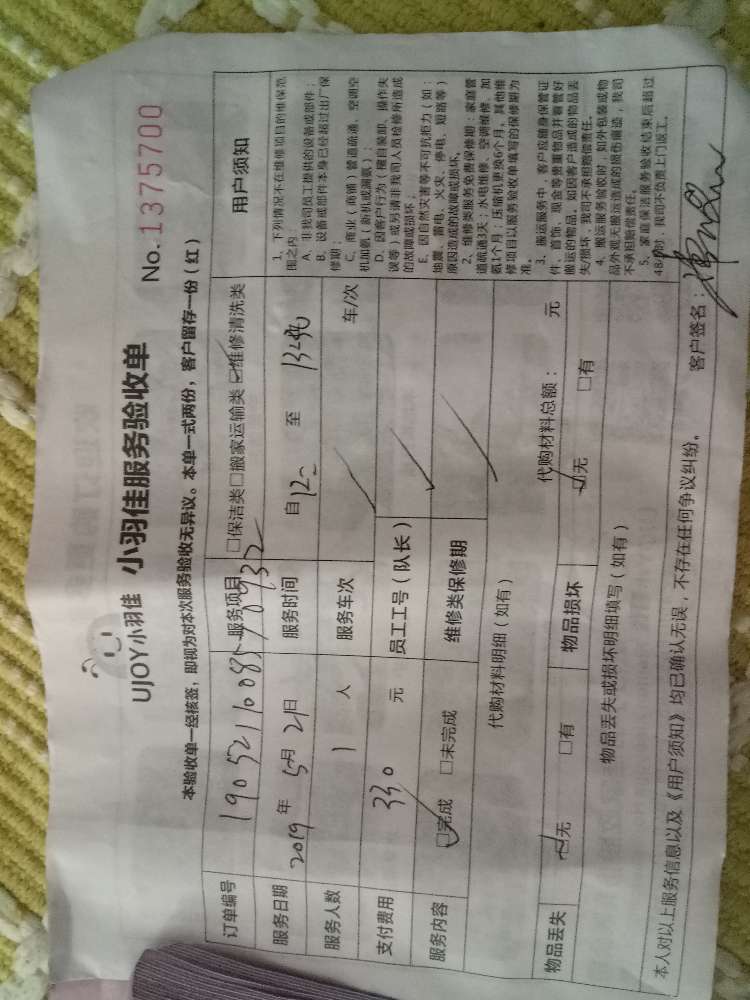 UJOY小羽佳
小羽佳服务验收单
No.1375700
本验收单一经核签，即视为对本次服务验收无异议。本单一式两份，客户留存一份（红）
订单编号
服务项目 □保洁类□搬家运输类☑维修清洗类
服务日期 2019年5月21日
服务时间 自 至
服务人数 1 人
服务车次 车/次
支付费用 330 元
员工工号（队长）
服务内容 ☑完成 □未完成
维修类保修期
代购材料明细（如有）
代购材料总额： 元
物品丢失 ☑无 □有
物品损坏 ☑无 □有
物品丢失或损坏明细填写（如有）
用户须知
1、下列情况不在维修项目的维保范
围之内：
A、非我司员工提供的设备或部件；
B、设备或部件本身已经超过出厂保
修期；
C、商业（商铺）管道疏通、空调空
机加氨（新机或漏氨）；
D、因客户行为（擅自装卸、操作失
误等）或另请非我司人员检修所造成
的故障或损坏；
E、因自然灾害等不可抗拒力（如：
地震、雷电、火灾、停电、短路等）
原因造成的故障或损坏。
2、维修类服务免费保修期：家庭管
道疏通3天；水电维修、空调维修、加
氨1个月；压缩机更换6个月，其他维
修项目以服务验收单填写的保修期为
准。
3、搬运服务中，客户应随身保管证
件、首饰、现金等贵重物品并看管好
搬运的物品，如因客户造成的物品丢
失/损坏，我司不承担赔偿责任。
4、搬运服务验收时，如外包装或物
品外观无搬运造成的损伤痕迹，我司
不承担赔偿责任。
5、家庭保洁服务验收结束后超过
48小时，我司不负责上门返工。
本人对以上服务信息以及《用户须知》均已确认无误，不存在任何争议纠纷。
客户签名：